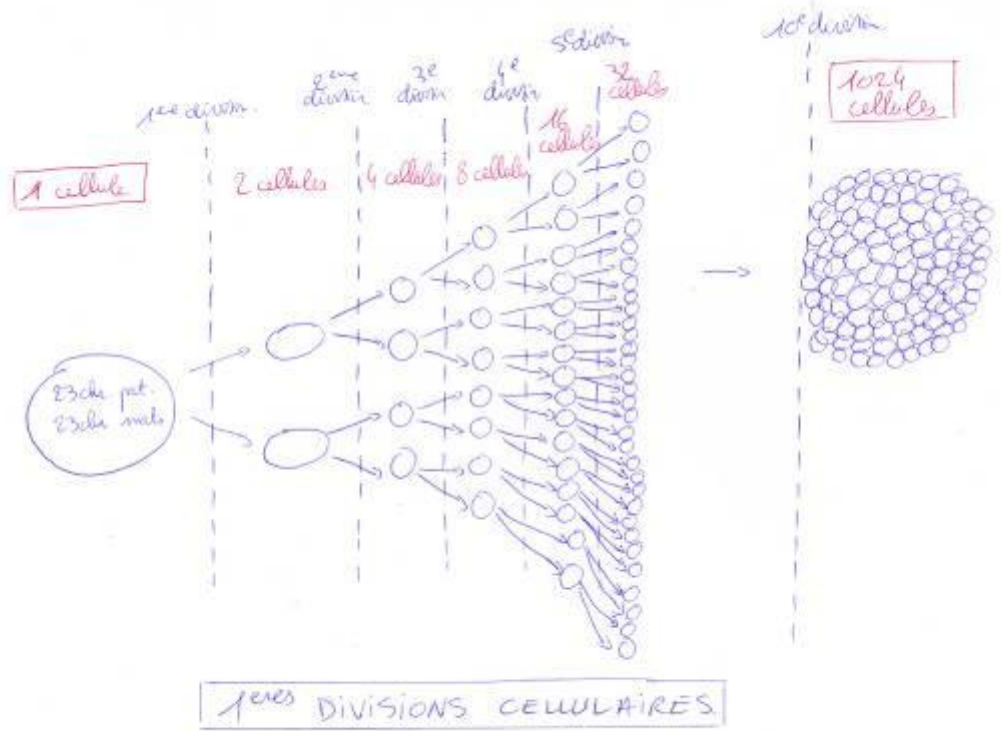 1ère division
2ème
division
3e
division
4e
division
5e division
10e division
1 cellule
2 cellules
4 cellules
8 cellules
16
cellules
32
cellules
1024
cellules
23 chr pat.
23 chr mat
1eres DIVISIONS CELLULAIRES